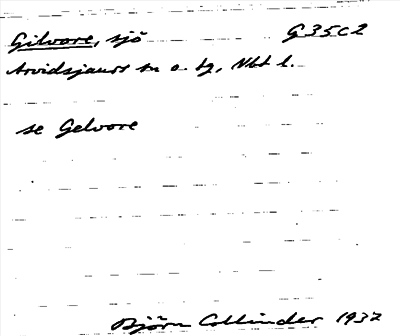 Gilvare, sjö G35c2
Arvidsjaurs sn o. tg, Nbt l.
se Gelvare
Björn Collinder 1932